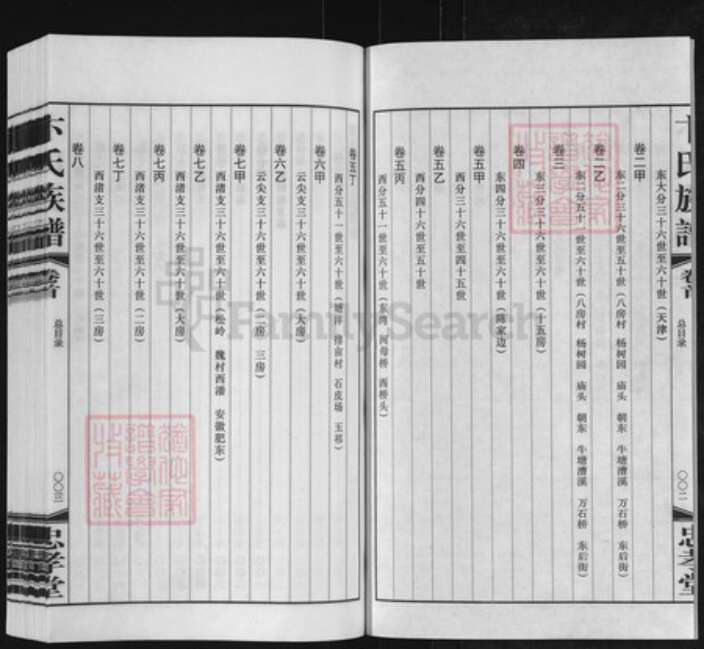 卞氏族谱
卷首
总目录
〇〇二
忠孝堂
卷二甲
东大分三十六世至六十世（天津）
卷二乙
东二分三十六世至五十世（八房村 杨树园 庙头 朝东 牛塘漕溪 万石桥 东后街）
卷三
东二分五十一世至六十世（八房村 杨树园 庙头 朝东 牛塘漕溪 万石桥 东后街）
东三分三十六世至六十世（十五房）
卷四
东四分三十六世至六十世（陈家边）
卷五甲
西分三十六世至四十五世
卷五乙
西分四十六世至五十世
卷五丙
西分五十一世至六十世（东湾 河母桥 西桥头）
卷五丁
西分五十一世至六十世（塘洋 石皮场 玉祁）
卷六甲
云尖支三十六世至六十世（大房）
卷六乙
云尖支三十六世至六十世（二房 三房）
卷七甲
西渚支三十六世至六十世（松岭 魏村西潘 安徽肥东）
卷七乙
西渚支三十六世至六十世（大房）
卷七丙
西渚支三十六世至六十世（二房）
卷七丁
西渚支三十六世至六十世（三房）
卷八
卞氏族谱
卷首
总目录
〇〇三
忠孝堂
FamilySearch